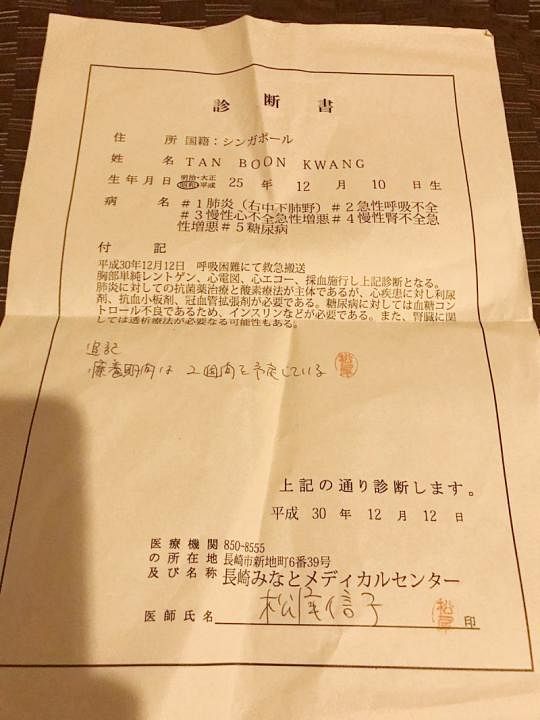 診断書
住所 国籍：シンガポール
姓名 TAN BOON KWANG
生年月日 明治・大正 昭和・平成 25年12月10日生
病名 #1肺炎（右中下肺野）#2急性呼吸不全
#3慢性心不全急性増悪#4慢性腎不全急
性増悪#5糖尿病
付記
平成30年12月12日 呼吸困難にて救急搬送
胸部単純レントゲン、心電図、心エコー、採血施行し上記診断となる。
肺炎に対しての抗菌薬治療と酸素療法が主体であるが、心疾患に対し利尿
剤、抗血小板剤、冠血管拡張剤が必要である。糖尿病に対しては血糖コント
ロール不良であるため、インスリンなどが必要である。また、腎臓に関
しては透析療法が必要なる可能性もある。
追記
療養期間は2週間を予定している
上記の通り診断します。
平成30年12月12日
医療機関 850-8555
の所在地 長崎市新地町6番39号
及び名称 長崎みなとメディカルセンター
医師氏名 松尾信子 印